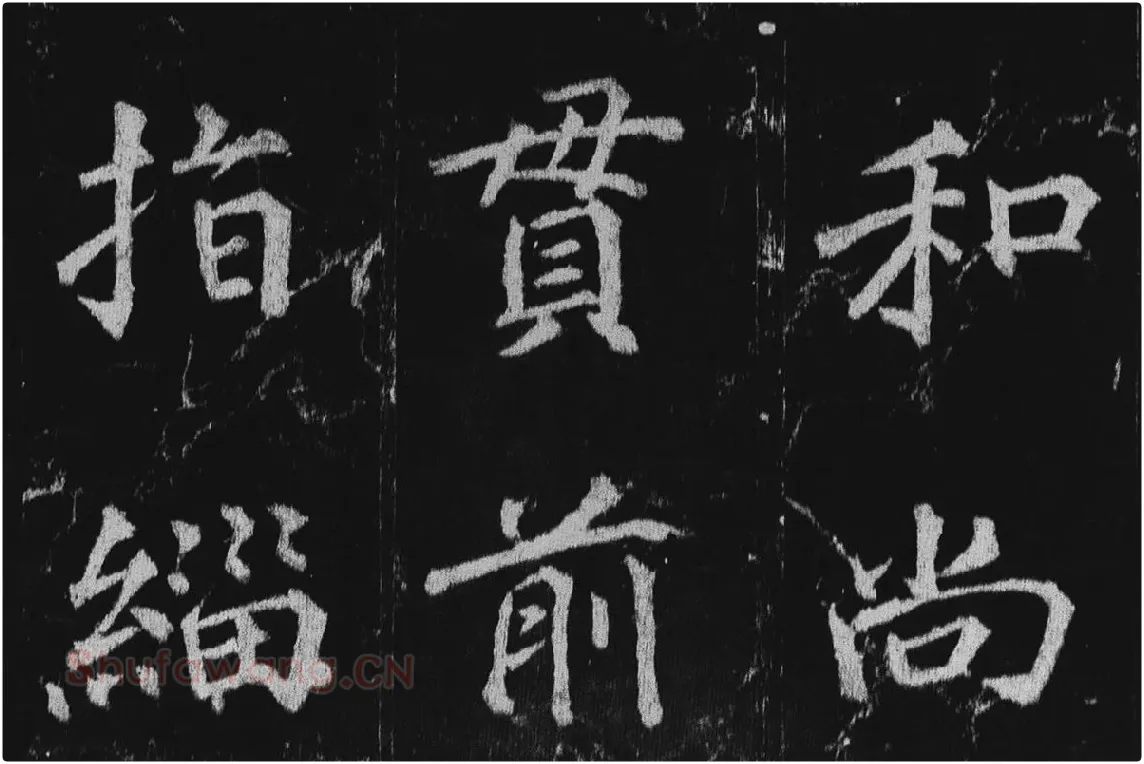 和尚
貫前
指緇
Shufawang.CN